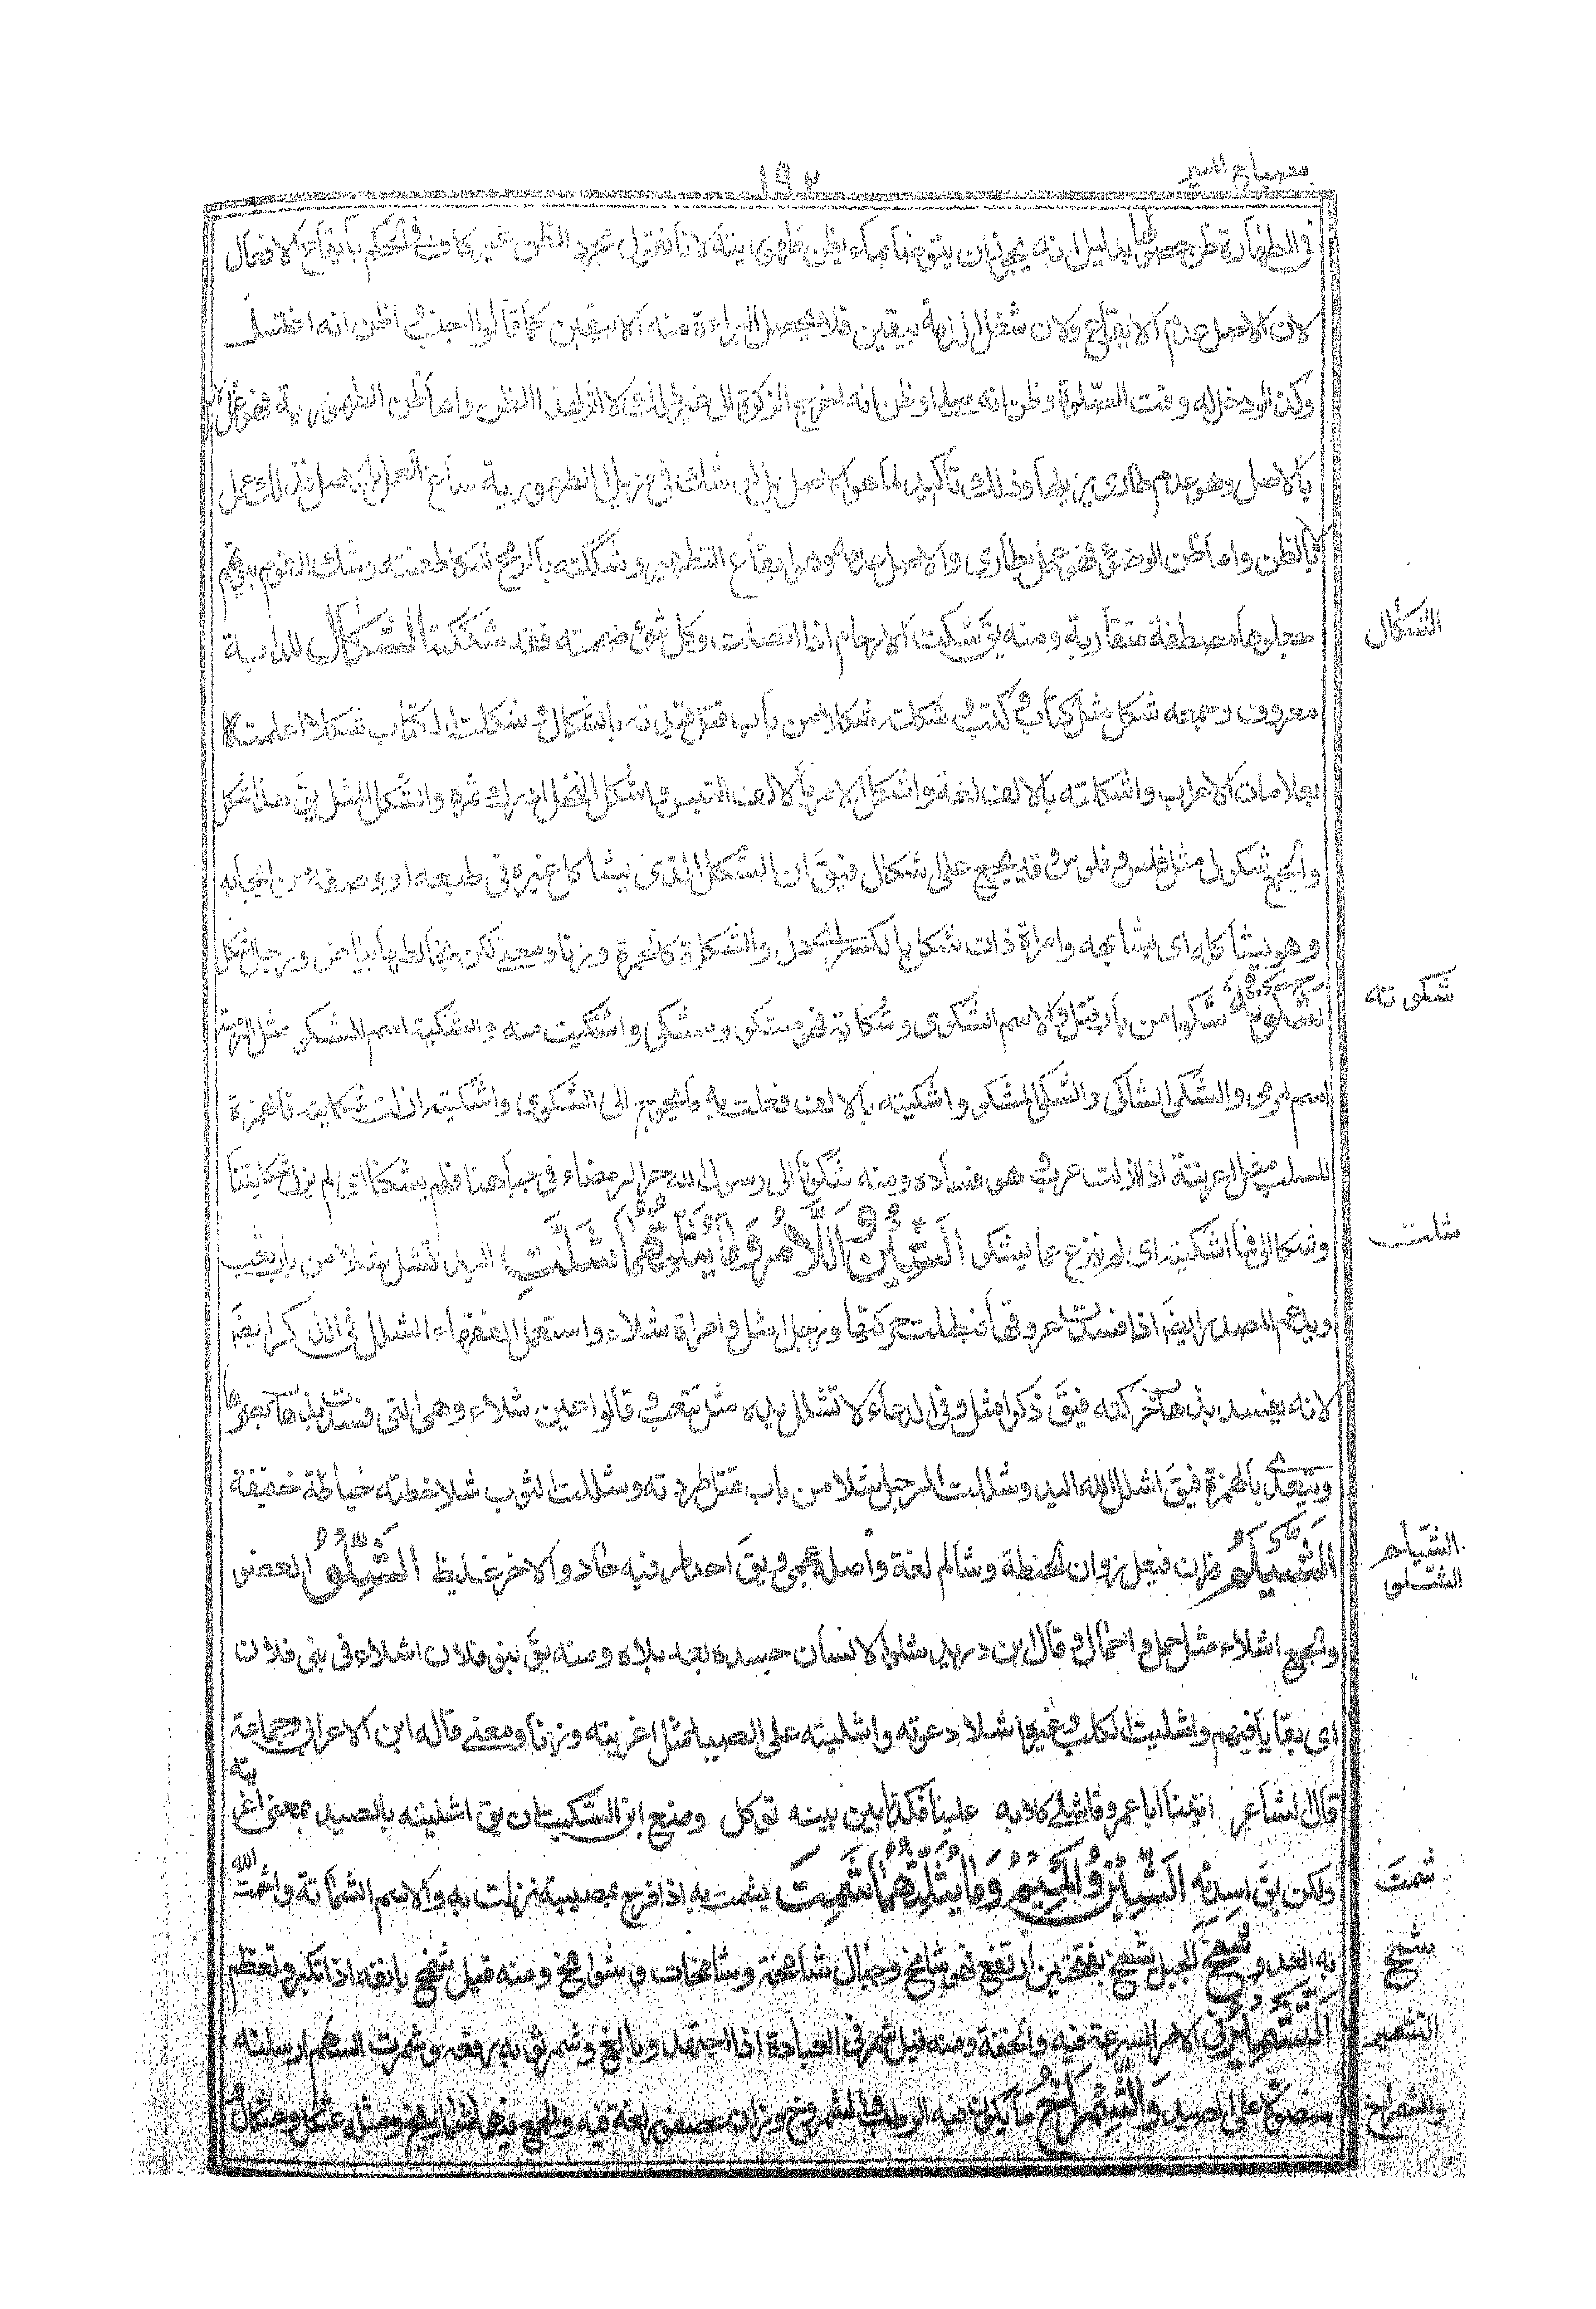 مصباح المنير
١٩٢
فى الطهارة ظن حصولها بدليل انه يجوز ان يتوضأ بماء يظن طهوريته لانا نقول مجرد الظن غير كاف فى الحكم بايقاع الافعال
لان الاصل عدم الايقاع ولان شغل الذمة بيقين فلا تحصل البراءة منه الا بيقين كما قالوا الجنب اظن انه اغتسل
وكذا لو دخل له وقت الصلوة وظن انه صلى او ظن انه اخرج الزكوة الى غير ذلك لا اثر لهذا الظن واما ظن الطهورية فهو عمل
بالاصل وهو عدم طارى يزيلها وذلك تأكيد لما هو الاصل بل لو شك فى مزيل الطهورية ساغ العمل بالاصل فذلك عمل
بالظن واما ظن الوضوء فهو عمل بطارى والاصل عدمه وهو ايقاع التطهير وشككته بالرمح شكا طعنته وشك القوم بيوتهم
جعلوها مصطفة متقاربة ومنه يق شكت الارحام اذا اتصلت وكل شئ ضممته فقد شككته الشكال للدابة
الشكال
معروف وجمعه شكل مثل كتاب وكتب وشكلته شكلا من باب قتل قيدته بالشكال وشكلت الكتاب شكلا اعلمته
بعلامات الاعراب واشكلته بالالف لغة واشكل الامر بالالف التبس واشكل النخل ادرك ثمره والشكل المثل يق هذا شكل
والجمع شكول مثل فلس وفلوس وقد يجمع على اشكال فيق ان الشكل الذى يشاكل غيره فى طبعه او وصفه من انحائه
وهو يشاكله اى يشابهه وامراة ذات شكل بالكسر اى دل والشكلة كالحمرة وزنا ومعنى لكن يخالطها بياض ورجل اشكل
شكوته شكوا من باب قتل والاسم الشكوى وشكاية فهو مشكو ومشكى واشتكيت منه والشكية اسم المشكو مثل الرمية
شكوته
اسم المرمى والشكى الشاكى والشكى المشكو واشكيته بالالف فعلت به ما يحوج الى الشكوى واشكيته ازلت شكايته فالهمزة
للسلب مثل اعربته اذا ازلت عربه وهو فساده ومنه شكونا الى رسول الله حر الرمضاء فى جباهنا فلم يشكنا اى لم يزل شكايتنا
وشكا الى فما اشكيته اى لم انزع عما يشكى الشين واللام وما يثلثهما شلت اليد تشل شللا من باب تعب
شلت
ويدغم المصدر ايض اذا فسدت عروقها فبطلت حركتها ورجل اشل وامراة شلاء واستعمل الفقهاء الشلل فى الذكر ايض
لانه يفسد بذهاب حركته فيق ذكر اشل وفى الدعاء لا تشلل يده مثل تتعب وقالوا عين شلاء وهى التى فسدت بذهاب بصرها
ويتعدى بالهمزة فيق اشل الله اليد وشللت الرجل شلا من باب قتل طردته وشللت الثوب شلا خطته خياطة خفيفة
الشيلم وزان فيعل زوان الحنطة وشالم لغة واصله عجمى ويق احد طرفيه حاد والاخر غليظ الشلو العضو
الشيلم
الشلو
والجمع اشلاء مثل حمل واحمال وقال ابن دريد شلو الانسان جسده بعد بلاه ومنه يق بنو فلان اشلاء فى بنى فلان
اى بقايا فيهم واشليت الكلب وغيره اشلاء دعوته واشليته على الصيد مثل اغريته وزنا ومعنى قاله ابن الاعرابى وجماعة
قال الشاعر اتينا ابا عمرو فاشلى كلابه علينا فكدنا بين بيته نوكل ومنع ابن السكيت ان يق اشليته بالصيد بمعنى اغريته
ولكن يق اسدته الشين والميم وما يثلثهما شمت يشمت به اذا فرح بمصيبة نزلت به والاسم الشماتة واشمت الله
شمت
به العدو شمخ الجبل يشمخ بفتحتين ارتفع فهو شامخ وجبال شامخة وشامخات وشوامخ ومنه قيل شمخ بانفه اذا تكبر وتعظم
شمخ
التشمير فى الامر السرعة فيه والخفة ومنه قيل شمر فى العبادة اذا اجتهد وبالغ وشمر ثوبه رفعه وشمرت السهم ارسلته
التشمير
مصوبا على الصيد والشمراخ ما يكون فيه الرطب والشمروخ وزان عصفور لغة فيه والجمع فيهما شماريخ ومثله عثكل وعثكال
والشمراخ